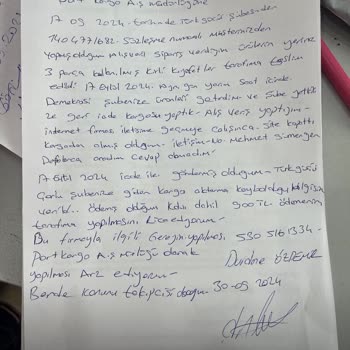 Port kargo A.ş Müdürlüğüne
17 09. 2024 tarihinde Türkgücü Şubesinden
740477682. Sözleşme numaralı müşterinizden
Yapmış olduğum Alışveriş sipariş verdiğim ürünlerin yerine
3 parça kullanılmış kirli kıyafetler tarafıma teslim
edildi 17 Eylül 2024. Aynı gün yarım saat içinde
Demokrasi şubenize ürünleri götürdüm ve şube
ze geri iade kargosu yaptık - Alış veriş yaptığım -
internet firması iletişime geçmeye çalışınca. Site kapattı
olmuş olduğum - iletişim - No. Mehmet
Defalarca aradım cevap alamadım -
17 Eylül 2024 iade ile göndermiş olduğum - Türkgücü
Çorlu şubenize gelen kargo aktarma kaybolduğu bilgisi
verildi.. ödemiş olduğum Kdv dahil 900 TL ödemenin
tarafıma yapılmasını Rica ediyorum -
Bu firmayla ilgili Gereğin yapılması 530 516 1334 -
Port kargo A.ş Müdürlüğü olarak
yapılması Arz ediyorum -
Bende Konunun takipçisi olacağım 30-09 2024